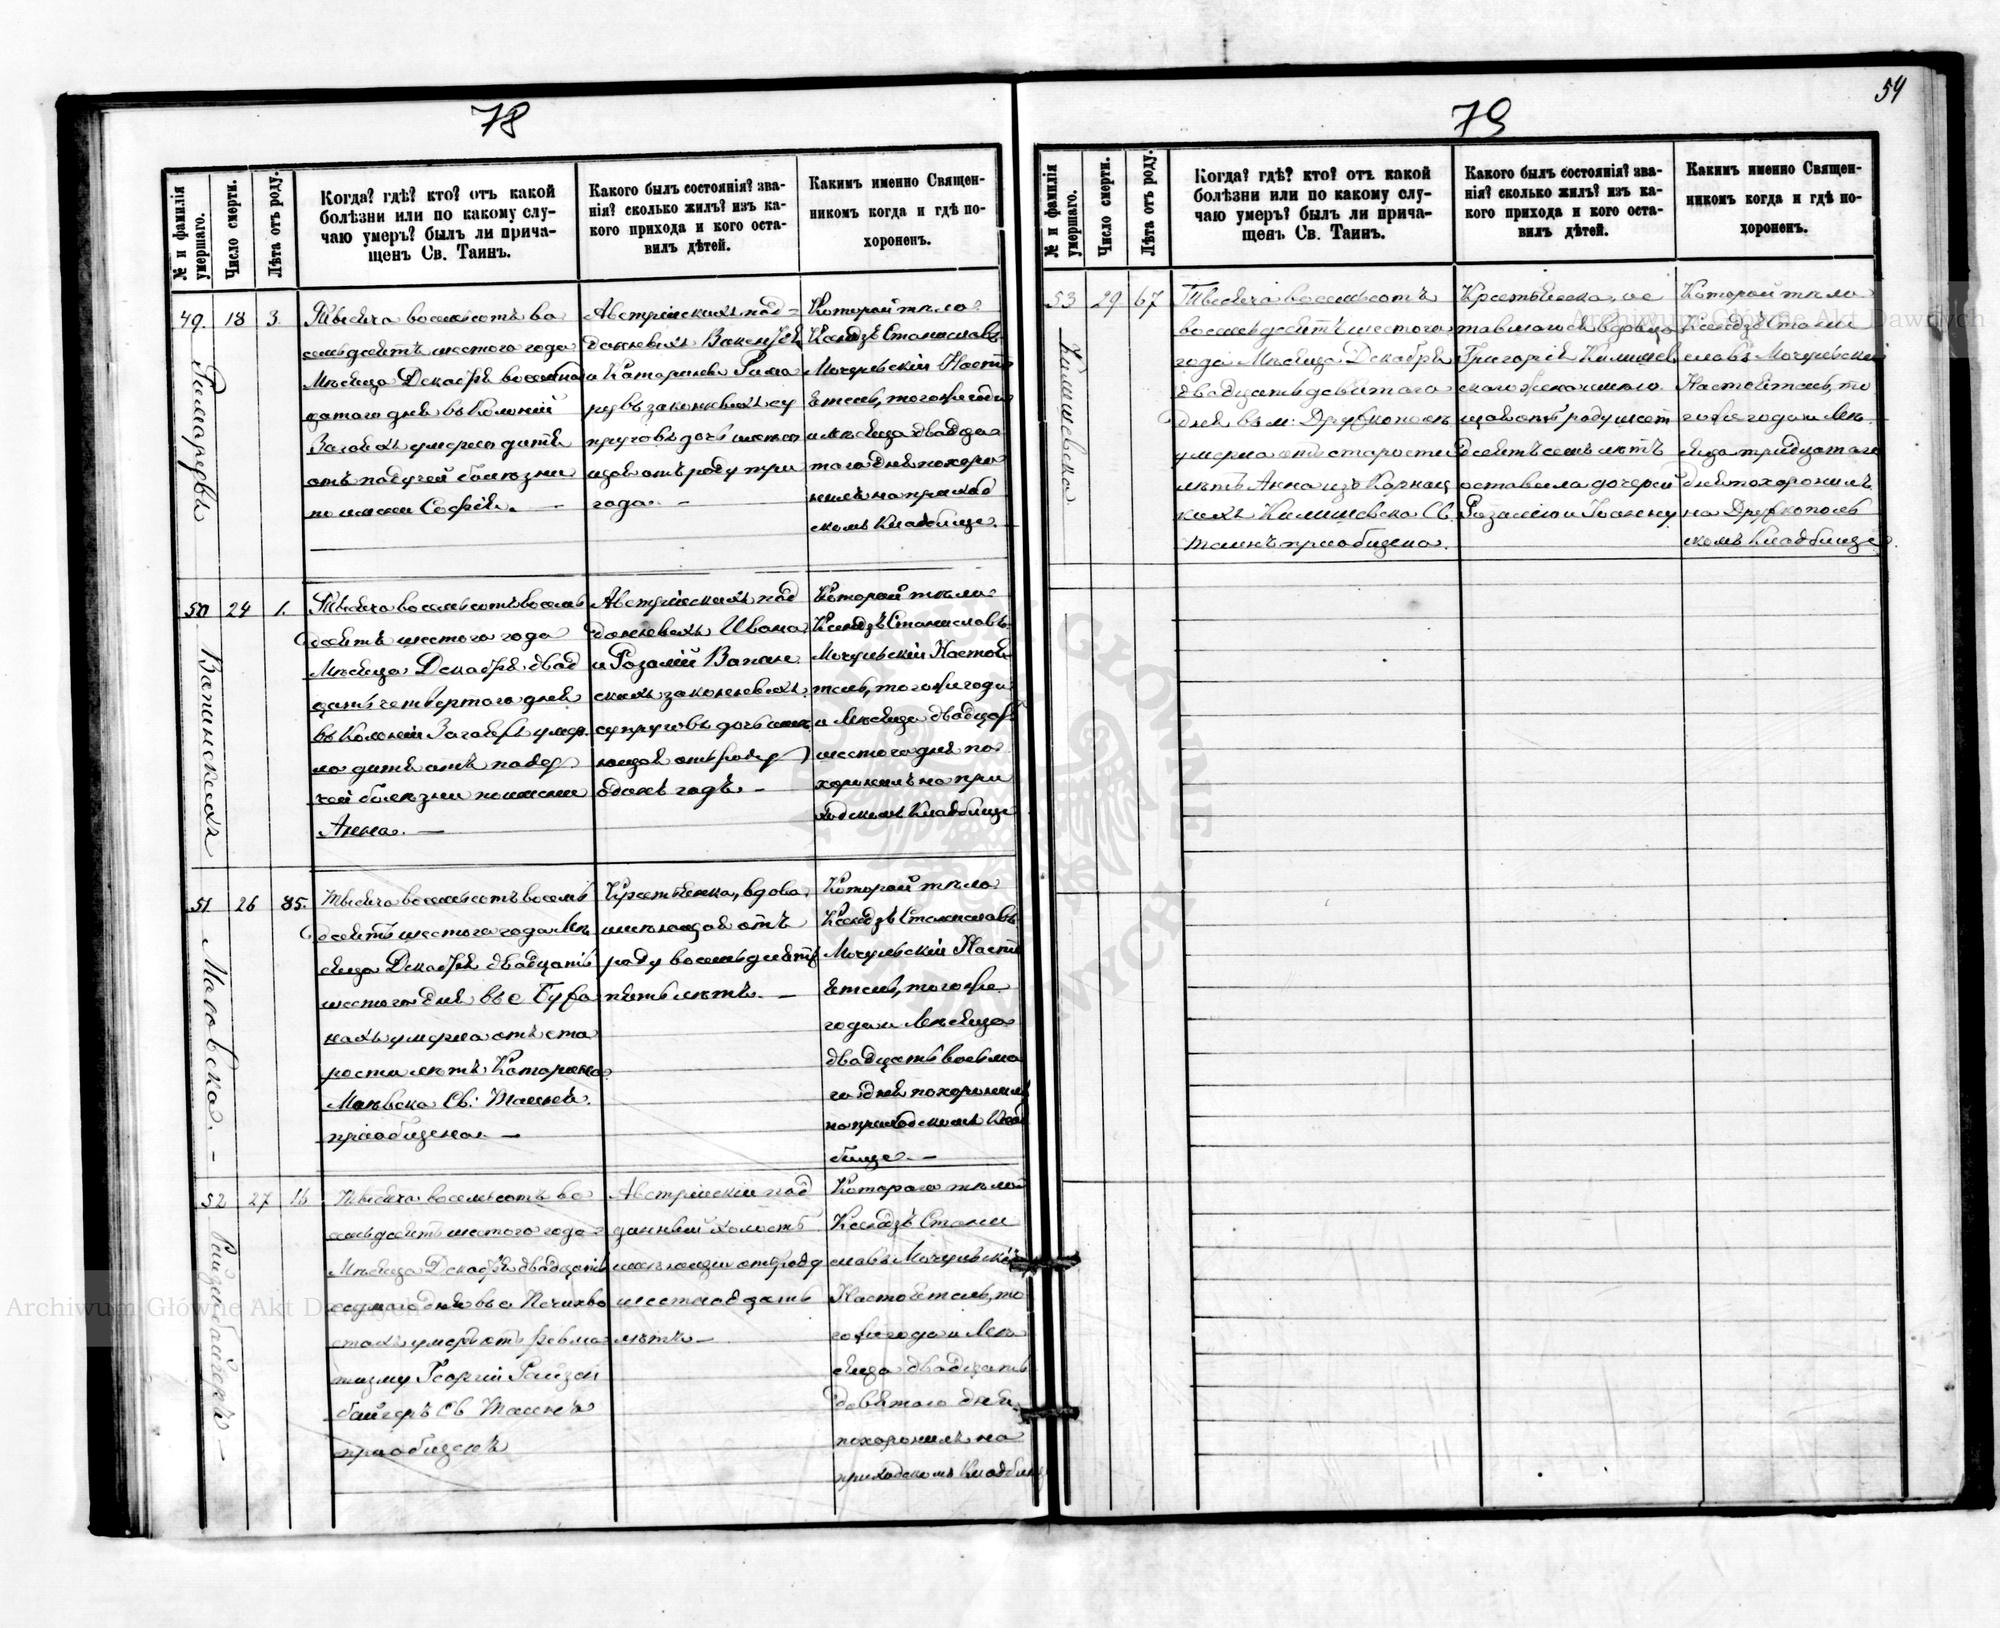 78
№ и фамилія умершаго.
Число смерти.
Лѣта отъ роду.
Когда? гдѣ? кто? отъ какой
болѣзни или по какому слу-
чаю умеръ? былъ ли прича-
щенъ Св. Таинъ.
Какого былъ состоянія? зва-
нія? сколько жилъ? изъ ка-
кого прихода и кого оста-
вилъ дѣтей.
Какимъ именно Священ-
никомъ когда и гдѣ по-
хороненъ.
49.
18
3.
Тысяча восемьсотъ во
семьдесятъ шестого года
Мѣсяца Декабря восемна
цатого дня въ Колоніи
умерло дитя
отъ падучей болѣзни
по имени Софія. —
Австрійскихъ под-
данныхъ
и Катарины
ровъ законныхъ су
пруговъ дочь имѣю
щая отъ роду три
года. —
Которой тѣло
Ксендзъ Станиславъ
Мочульскій Насто
ятель, того же года
и Мѣсяца двадца
того дня похоро
нилъ на приход
скомъ Кладбище.
50
24
1.
Ватинскихъ
Тысяча восемьсотъ восемь
десятъ шестого года
Мѣсяца Декабря двад
цать четвертого дня
въ Колоніи умер
ло дитя отъ паду
чей болѣзни по имени
Анна. —
Австрійскихъ под
данныхъ Ивана
и Розаліи Ватин
скихъ законныхъ
супруговъ дочь имѣ
ющая отъ роду
одинъ годъ. —
Которой тѣло
Ксендзъ Станиславъ
Мочульскій Настоя
тель, того же года
и Мѣсяца двадцать
шестого дня по
хоронилъ на при
ходскомъ Кладбище
51
26
85.
Маковска. —
Тысяча восемьсотъ восемь
десятъ шестого года Мѣ
сяца Декабря двадцать
шестого дня въ с
нахъ умерла отъ ста
рости лѣтъ Катарина
Св. Таинъ
пріобщена. —
Крестьянка, вдова,
имѣющая отъ
роду восемьдесятъ
пять лѣтъ. —
Которой тѣло
Ксендзъ Станиславъ
Мочульскій Насто
ятель, того же
года и Мѣсяца
двадцать восьмо
го дня похоронилъ
на приходскомъ Клад
бище. —
52
27
16
Тысяча восемьсотъ во
семьдесятъ шестого года
Мѣсяца Декабря двадцать
седмого дня въ с
стахъ умеръ отъ Ревма
тизму Георгій Райзен
байгеръ Св Таинъ
пріобщенъ
Австрійскій под
данный холостъ
имѣющій отъ роду
шестнадцать
лѣтъ —
Которого тѣло
Ксендзъ Стани
славъ Мочульскій
Настоятель, то
го же года и Мѣ
сяца двадцать
девятого дня
похоронилъ на
приходскомъ Кладбище
79
54
№ и фамилія умершаго.
Число смерти.
Лѣта отъ роду.
Когда? гдѣ? кто? отъ какой
болѣзни или по какому слу-
чаю умеръ? былъ ли прича-
щенъ Св. Таинъ.
Какого былъ состоянія? зва-
нія? сколько жилъ? изъ ка-
кого прихода и кого оста-
вилъ дѣтей.
Какимъ именно Священ-
никомъ когда и гдѣ по-
хороненъ.
53
29
67
Калишевска
Тысяча восемьсотъ
восемьдесятъ шестого
года Мѣсяца Декабря
двадцать девятого
дня въ м. Дружкополь
умерла отъ старости
лѣтъ Анна изъ
кихъ Калишевска Св.
Таинъ пріобщена.
Крестьянка, ос
тавшагося вдовца
Григорія Калишев
скаго жена имѣю
щая отъ роду шест
десятъ семь лѣтъ
оставила дочерей
Розалію и Іоанну
Которой тѣло
Ксендзъ Стани
славъ Мочульскій
Настоятель, то
го же года и Мѣ
сяца тридцатаго
дня похоронилъ
на Дружкополь
скомъ Кладбище.
Archiwum Główne Akt Dawnych
Archiwum Główne Akt Dawnych